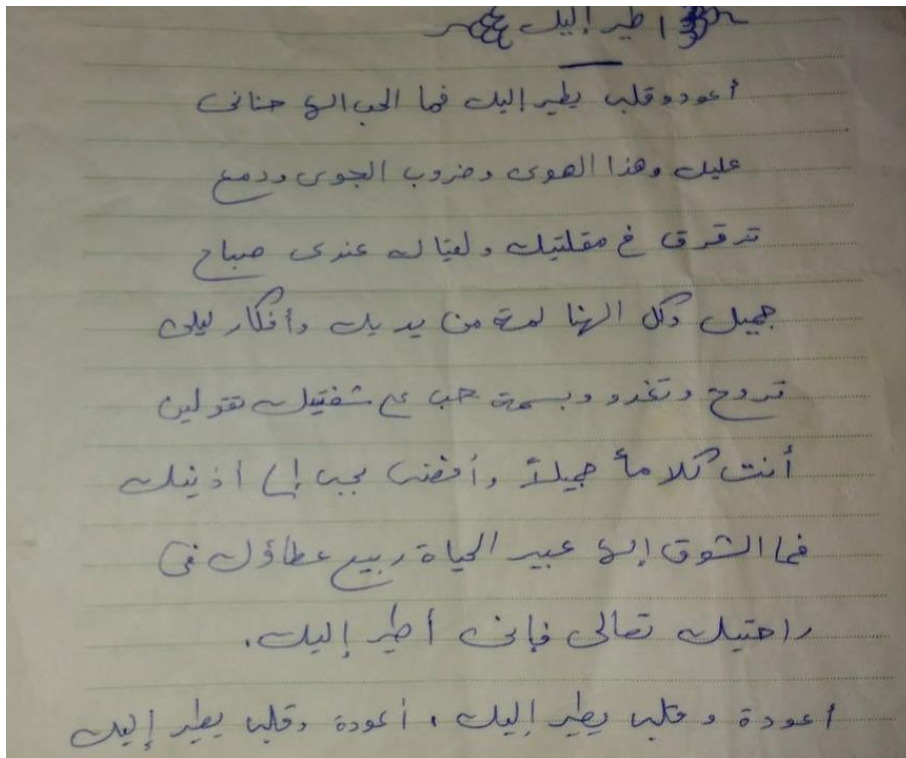 أطير إليك
أعود وقلبى يطير إليك فما الحب إلا حنانى
عليك وهذا الهوى وضروب الجوى ودمع
ترقرق فى مقلتيك ولقياك عندى صباح
جميل وكل الهنا لمسة من يديك وأفكار ليلى
تروح وتغدو وبسمة حب على شفتيك تقولين
أنت كلاماً جميلاً وأفضى بحب إلى أذنيك
فما الشوق إلا عبير الحياة ربيع عطاؤك فى
راحتيك تعالى فإنى أطير إليك.
أعودة وقلبى يطير إليك، أعودة وقلبى يطير إليك